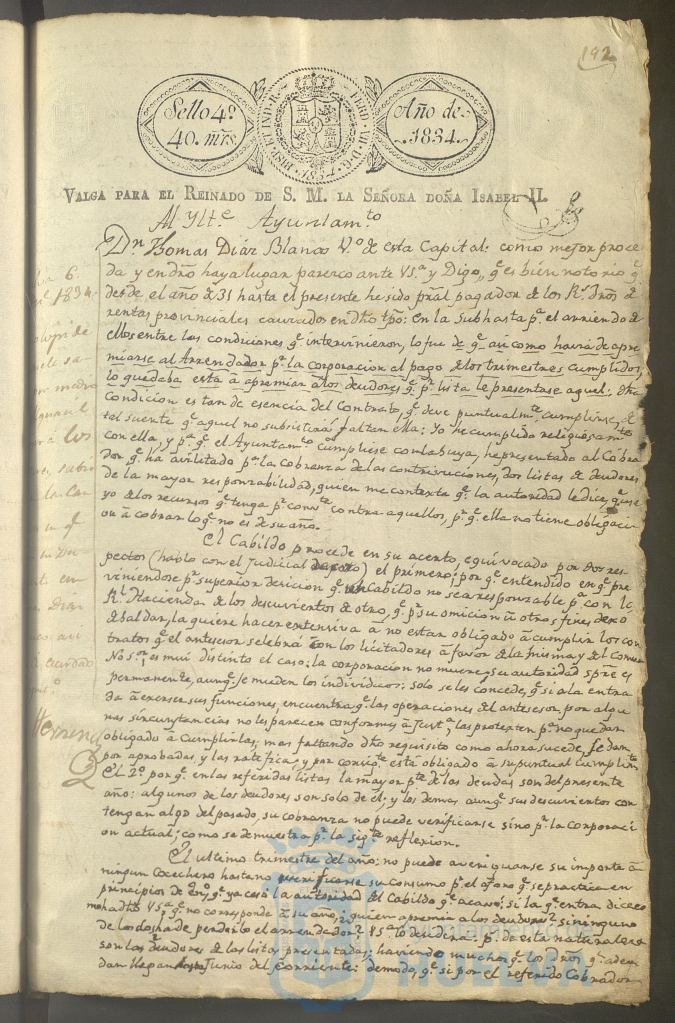 192
Sello 4º
40. mrs.
FERD. VII. D. G. HISP. ET IND. R.
1834
Año de
1834.
VALGA PARA EL REINADO DE S. M. LA SEÑORA DOÑA ISABEL II.
Al Ylte Ayuntamto
Dn Thomas Diáz Blanco Vº de esta Capital: como mejor proce
da y en dro haya lugar paresco ante VSa y Digo, qe es bien notorio qe
desde el año de 31 hasta el presente he sido pral pagador de los Rs Dros de
rentas provinciales causados en dho tpo: en la Subhasta pa el arriendo de
ellos entre las condiciones qe intervinieron, lo fue de qe asi como havia de apre
miarse al Arrendador pr la corporacion al pago de los trimestres cumplidos,
lo quedaba esta á apremiar á los deudores qe pr lista le presentase aquel: dha
Condicion es tan de esencia del Contrato, qe deve puntualmte cumplirse, de
tal suerte qe aquel no subsistirá faltando ella: Yo he cumplido religiosamte
con ella, y pa qe el Ayuntamto cumpliese con la suya, he presentado al Cobra
dor qe ha avilitado pa la cobranza de las contrivuciones, dos listas de deudores
de la mayor responzabilidad, quien me contexta qe la autoridad le dice, qe use
yo de los recursos qe tenga pr conste contra aquellos, pr qe ella no tiene obligaci
on á cobrar lo qe no es de su año.
El Cabildo procede en su acerto, equivocado por dos res
pectos (hablo con el Judicial ) el primero; por qe entendido en qe pre
viniendose pr superior desicion qe un Cabildo no sea responzable pa con la
Rl Hacienda de los descuvientos de otro, qe pr su omicion ú otros fines, dexo
de saldar, la quiere hacer extenziva á no estar obligado á cumplir los con
tratos qe el antesesor selebrá con los licitadores á favor de la misma y del comun
No Sor; es mui distinto el caso; la corporacion no muere; su autoridad spre es
permanente, aunqe se muden los individuos: solo se les concede, qe si á la entra
da á exerser sus funciones, encuentra qe las operaciones del antesesor por algu
nas sircunstancias no les parecen conformes á Justa, las protexten pa no quedar
obligado á cumplirlas; mas faltando dho requisito como ahora sucede, se dan
por aprobadas, y las ratefica, y por consigte está obligado á su puntual cumplimto
El 2º por qe en las referidas listas la mayor pte de las deudas son del presente
año: algunos de los deudores son solo de el; y los demas aunqe sus descuvientos con
tengan algo del pasado, su cobranza no puede verificarse sino pr la corporaci
on actual; como se demuestra pr la sigte reflexion.
El ultimo trimestre del año; no puede averiguarse su importe á
ningun Cocechero hasta no verificarse su consumo pr el aforo qe se practica en
principios de Enº qe ya cesó la autoridad del Cabildo qe acavó; si la qe entra dice co
mo ha dho VSa qe no corresponde á su año, quien apremia á los deudores? si ninguno
de los dos, ha de perderlo el arrendador? VSa lo desidirá: pr de esta naturaleza
son las deudores de las listas presentadas; haviendo muchos qe los dros qe adeu
dan llegan hasta Junio del corriente: de modo, qe si por el referido Cobrador
6
1834.
los
Herrera
Ayuntamiento de
HUELVA